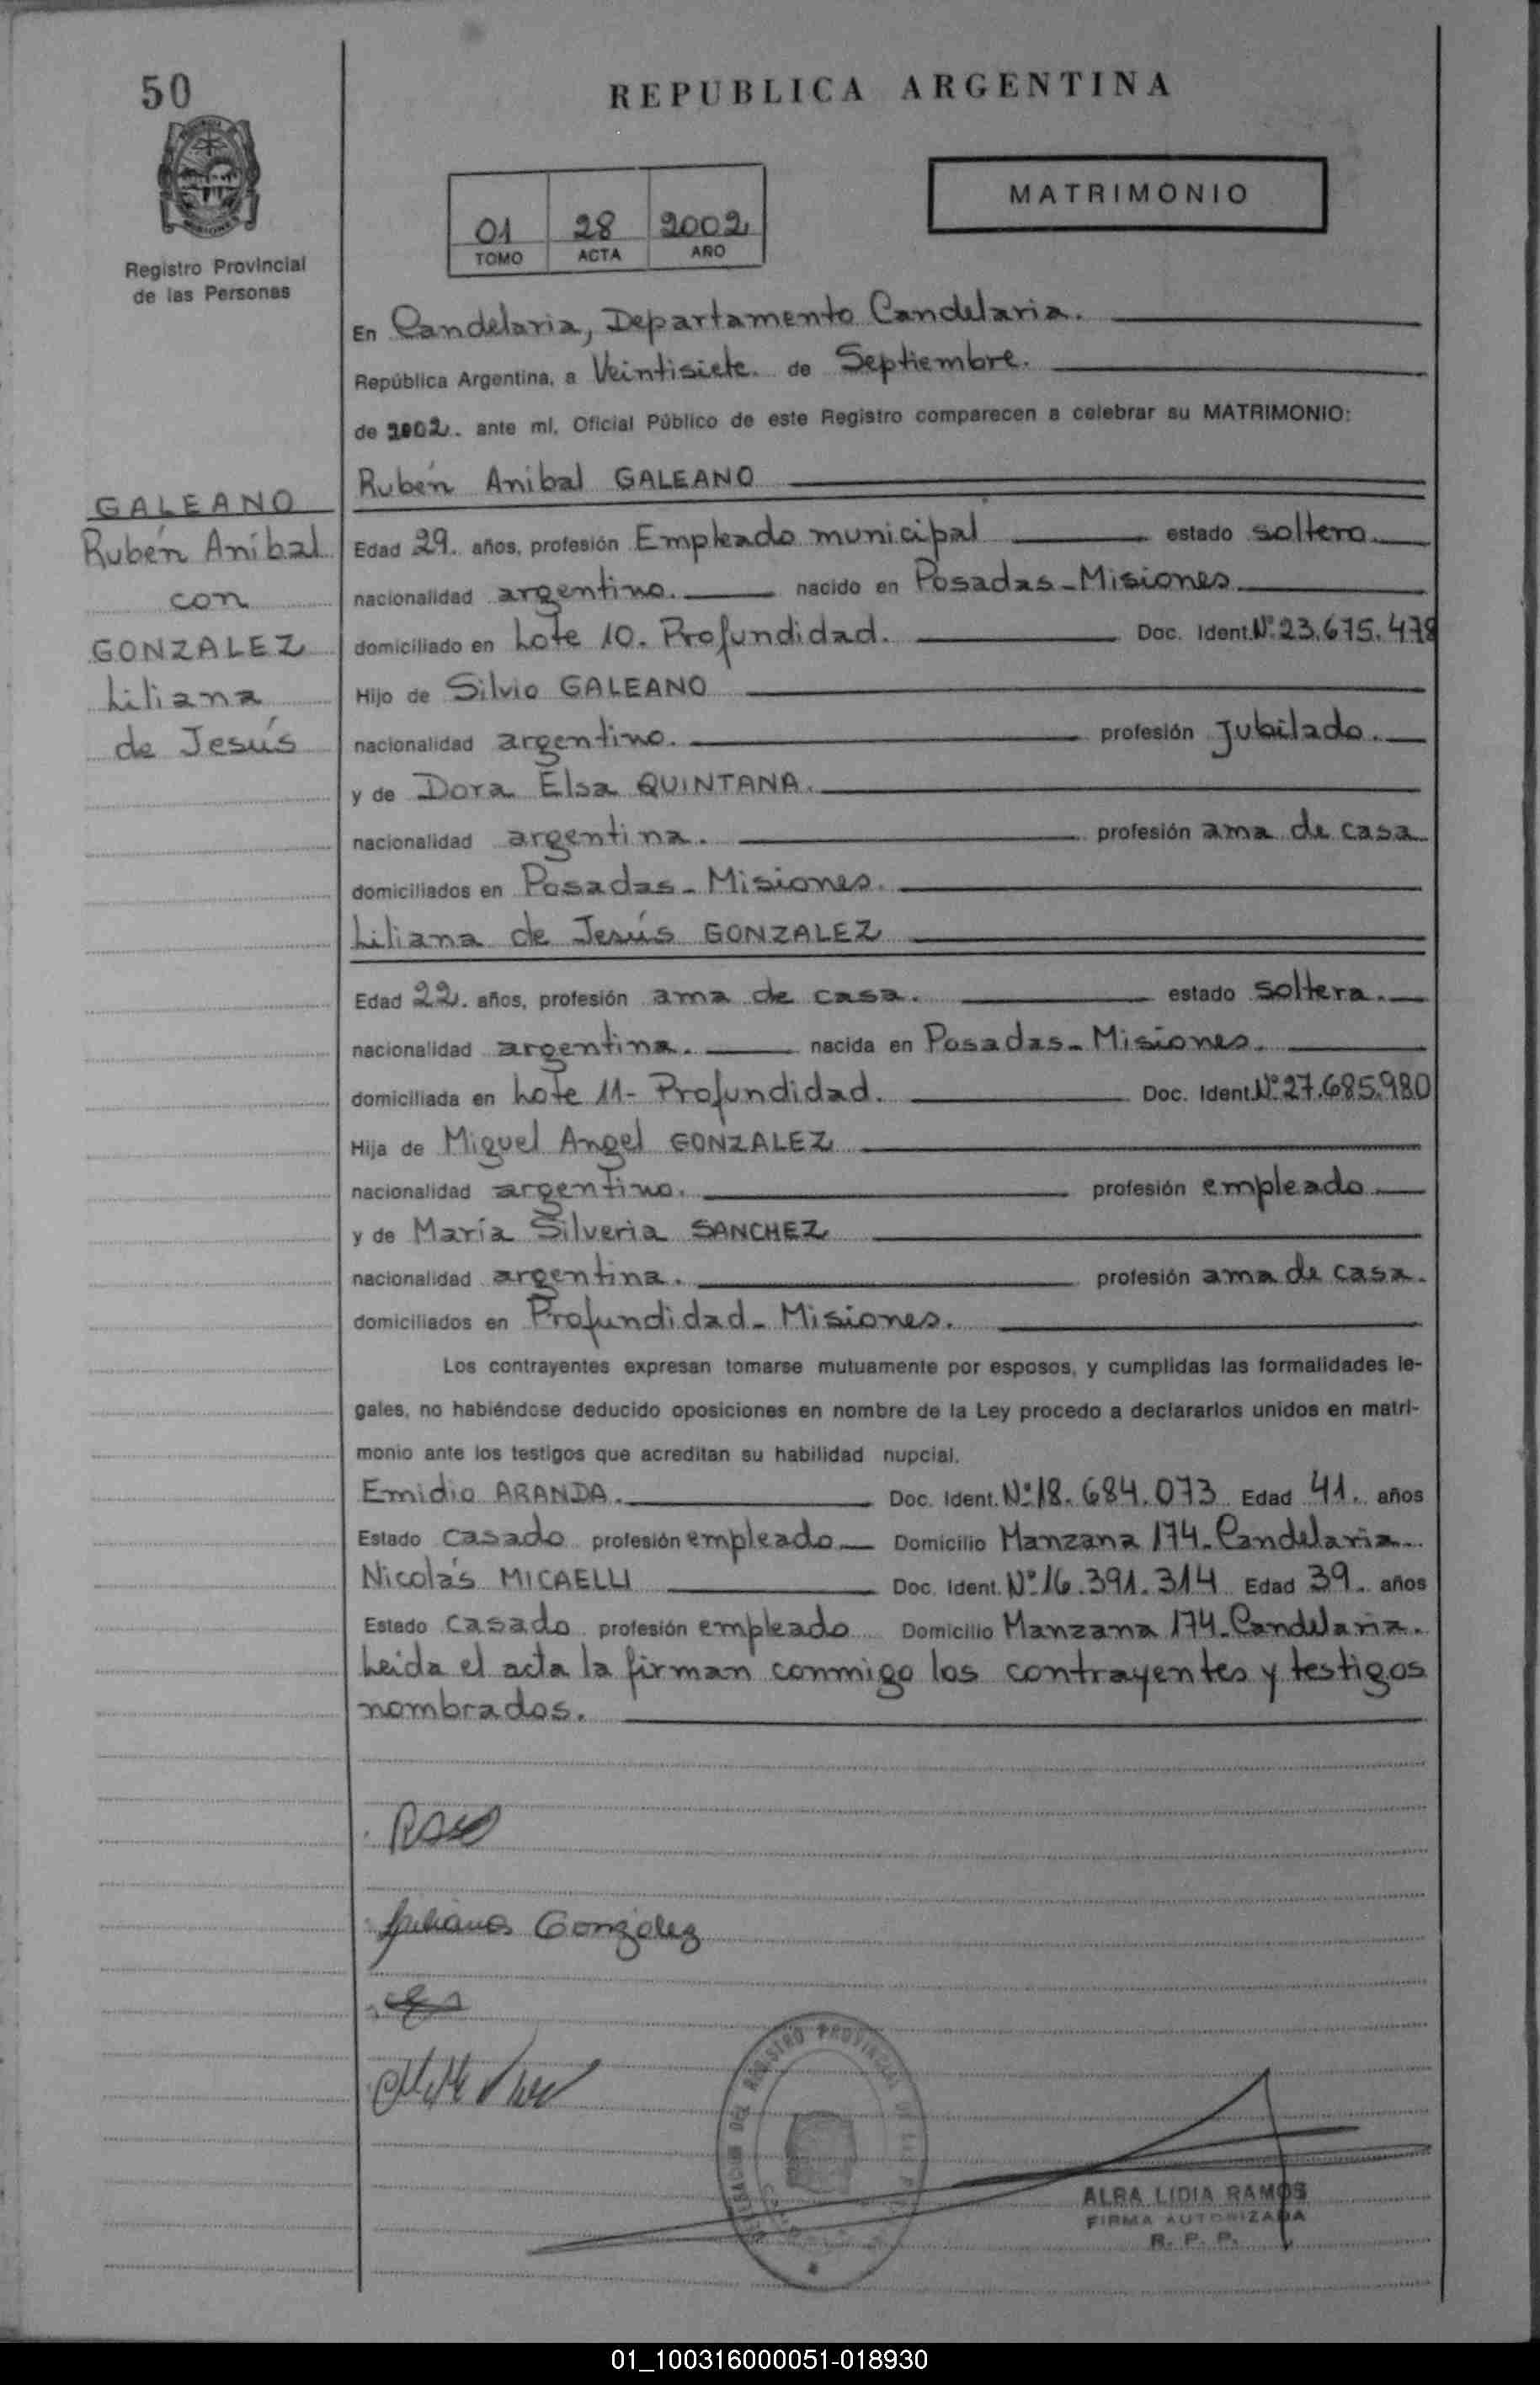 50
REPUBLICA ARGENTINA
MATRIMONIO
01 28 2002
TOMO ACTA AÑO
Registro Provincial
de las Personas
En Candelaria, Departamento Candelaria.
República Argentina, a Veintisiete. de Septiembre.
de 2002. ante mí, Oficial Público de este Registro comparecen a celebrar su MATRIMONIO:
GALEANO
Rubén Aníbal
con
GONZALEZ
Liliana
de Jesús
Rubén Anibal GALEANO
Edad 29. años, profesión Empleado municipal estado soltero.
nacionalidad argentino. nacido en Posadas-Misiones
domiciliado en Lote 10. Profundidad. Doc. Ident. Nº 23.675.478
Hijo de Silvio GALEANO
nacionalidad argentino. profesión Jubilado.
y de Dora Elsa QUINTANA.
nacionalidad argentina. profesión ama de casa
domiciliados en Posadas-Misiones.
Liliana de Jesús GONZALEZ
Edad 22. años, profesión ama de casa. estado soltera.
nacionalidad argentina. nacida en Posadas-Misiones.
domiciliada en Lote 11- Profundidad. Doc. Ident. Nº 27.685.980
Hija de Miguel Angel GONZALEZ
nacionalidad argentino. profesión empleado
y de María Silveria SANCHEZ
nacionalidad argentina. profesión ama de casa.
domiciliados en Profundidad-Misiones.
Los contrayentes expresan tomarse mutuamente por esposos, y cumplidas las formalidades le-
gales, no habiéndose deducido oposiciones en nombre de la Ley procedo a declararlos unidos en matri-
monio ante los testigos que acreditan su habilidad nupcial.
Emidio ARANDA. Doc. Ident. Nº 18.684.073 Edad 41. años
Estado casado profesión empleado Domicilio Manzana 174-Candelaria.
Nicolás MICAELLI Doc. Ident. Nº 16.391.314 Edad 39. años
Estado casado profesión empleado Domicilio Manzana 174-Candelaria.
Leida el acta la firman conmigo los contrayentes y testigos
nombrados.
Liliana González
REGISTRO PROVINCIAL DE LAS
ALBA LIDIA RAMOS
FIRMA AUTORIZADA
R. P. P.
01_100316000051-018930